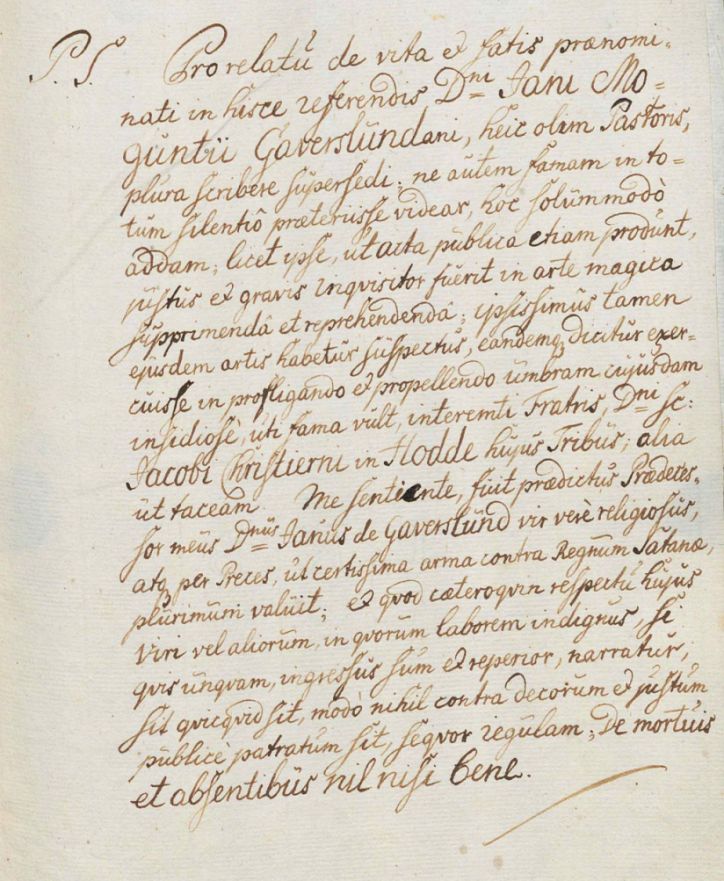 P.S. Pro relatû de vita et fatis prænomi=
nati in hisce referendis Dni Jani Mo=
guntii Gaverslundani, heic olim Pastoris,
plura scribere supersedi; ne autem famam in to=
tum silentiô præteriisse videar, hoc solummodò
addam; licet ipse, ut acta publica etiam produnt,
justus et gravis inqvisitor fuerit in arte magica
supprimendâ et reprehendendâ; ipsissimus tamen
ejusdem artis habetur suspectus, eandemq; dicitur exer=
cuisse in profligando et propellendo umbram cujusdam
insidiosè, uti fama vult, interemti Fratris, Dni sc:
Jacobi Christierni in Hodde hujus Tribus; alia
ut taceam. Me sentiente, fuit prædictus Prædeces=
sor meus Dnus Janus de Gaverslund vir verè religiosus,
atq; per Preces, ut certissima arma contra Regnum Satanæ,
plurimum valuit; et quod cæteroqvin respectu hujus
viri vel aliorum, in qvorum laborem indignus, si
qvis unqvam, ingressus sum et reperior, narratur;
sit qvicqvid sit, modò nihil contra decorum et justum
publicè patratum sit, seqvor regulam; De mortuis
et absentibus nil nisi bene.